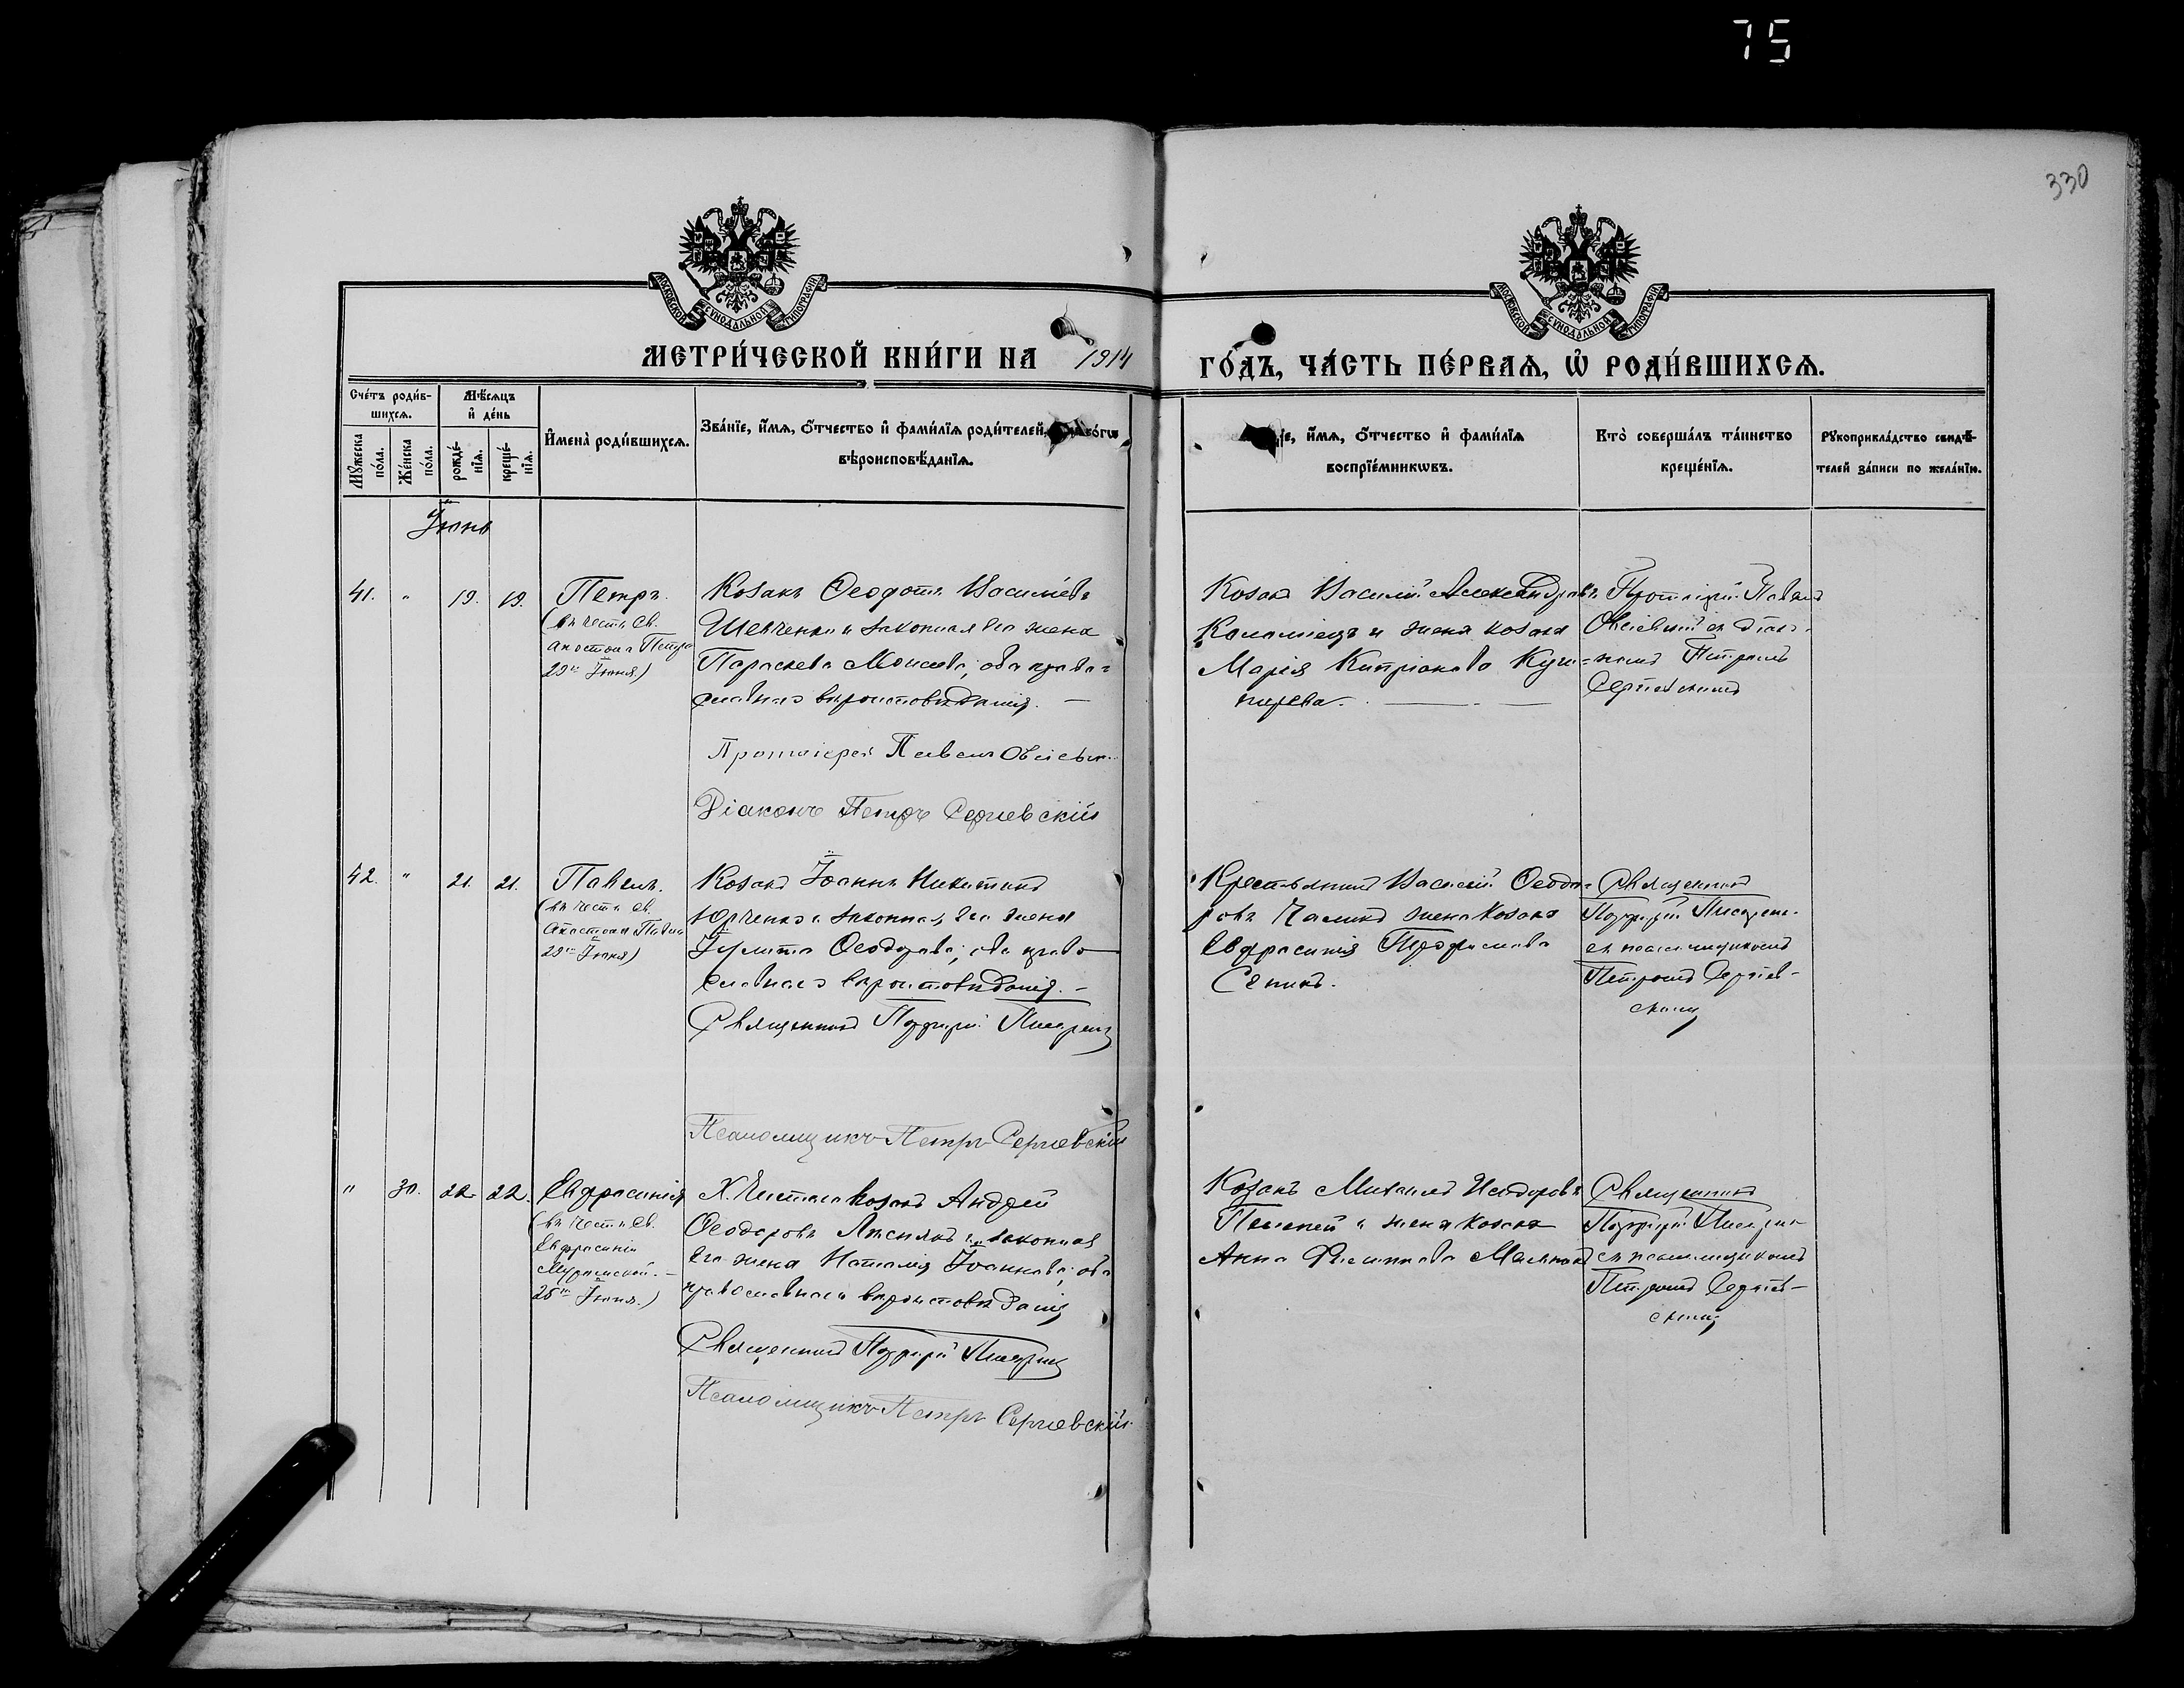 75
330
МОСКОВСКОЙ СѴНОДАЛЬНОЙ ТИПОГРАФІИ
МОСКОВСКОЙ СѴНОДАЛЬНОЙ ТИПОГРАФІИ
МЕТРИ́ЧЕСКОЙ КНИ́ГИ НА 1914
ГО́ДЪ, ЧА́СТЬ ПЕ́РВАѦ, Ѡ҆ РОДИ́ВШИХСѦ.
Сче́тъ роди́в-
шихсѧ.
Мꙋ́жеска по́ла.
Же́нска по́ла.
Мѣ́сѧцъ
и҆ де́нь
рожде́-
нїѧ.
креще́-
нїѧ.
И҆мена̀ роди́вшихсѧ.
Зва́нїе, и҆́мѧ, ѻ҆́тчество и҆ фами́лїѧ роди́телей,
вѣроисповѣ́данїѧ.
и҆́мѧ, ѻ҆́тчество и҆ фами́лїѧ
воспрїе́мникѡвъ.
Кто̀ соверша́лъ та́инство
креще́нїѧ.
Рꙋкоприкла́дство свидѣ́-
телей за́писи по жела́нїю.
Іюнь
41. " 19. 19. Петръ.
(въ честь св.
апостола Петра
29го Іюня.)
Козакъ Ѳеодотъ Васильевъ
Шевченко и законная его жена
Параскева Моисеева; оба право=
славнаго вѣроисповѣданія. —
Протоіерей Павелъ
Діаконъ Петръ Сергіевскій
Козакъ Василій Александровъ
Коломіецъ и жена козака
Марія Кипріанова
Протоіерей Павелъ
съ діако-
номъ Петромъ
Сергіевскимъ
42. " 21. 21. Павелъ.
(въ честь св.
Апостола Павла
29го Іюня)
Козакъ Іоаннъ Никитинъ
Юрченко и законная его жена
Ѳеодорова; оба право
славнаго вѣроисповѣданія. —
Священникъ Порфирій
Псаломщикъ Петръ Сергіевскій
Крестьянинъ Василій Ѳеодо-
ровъ жена козака
Евфросинія Трофимова
Священникъ
Порфирій
съ псаломщикомъ
Петромъ Сергіев-
скимъ
" 30. 22. 22. Евфросинія
(въ честь св.
Евфросиніи
Муромской. —
25го Іюня.)
козакъ Андрей
Ѳеодоровъ и законная
его жена Наталія Іоаннова; оба
православнаго вѣроисповѣданія
Священникъ Порфирій
Псаломщикъ Петръ Сергіевскій
Козакъ Михаилъ Исидоровъ
и жена козака
Анна Филиппова
Священникъ
Порфирій
съ псаломщикомъ
Петромъ Сергіев-
скимъ